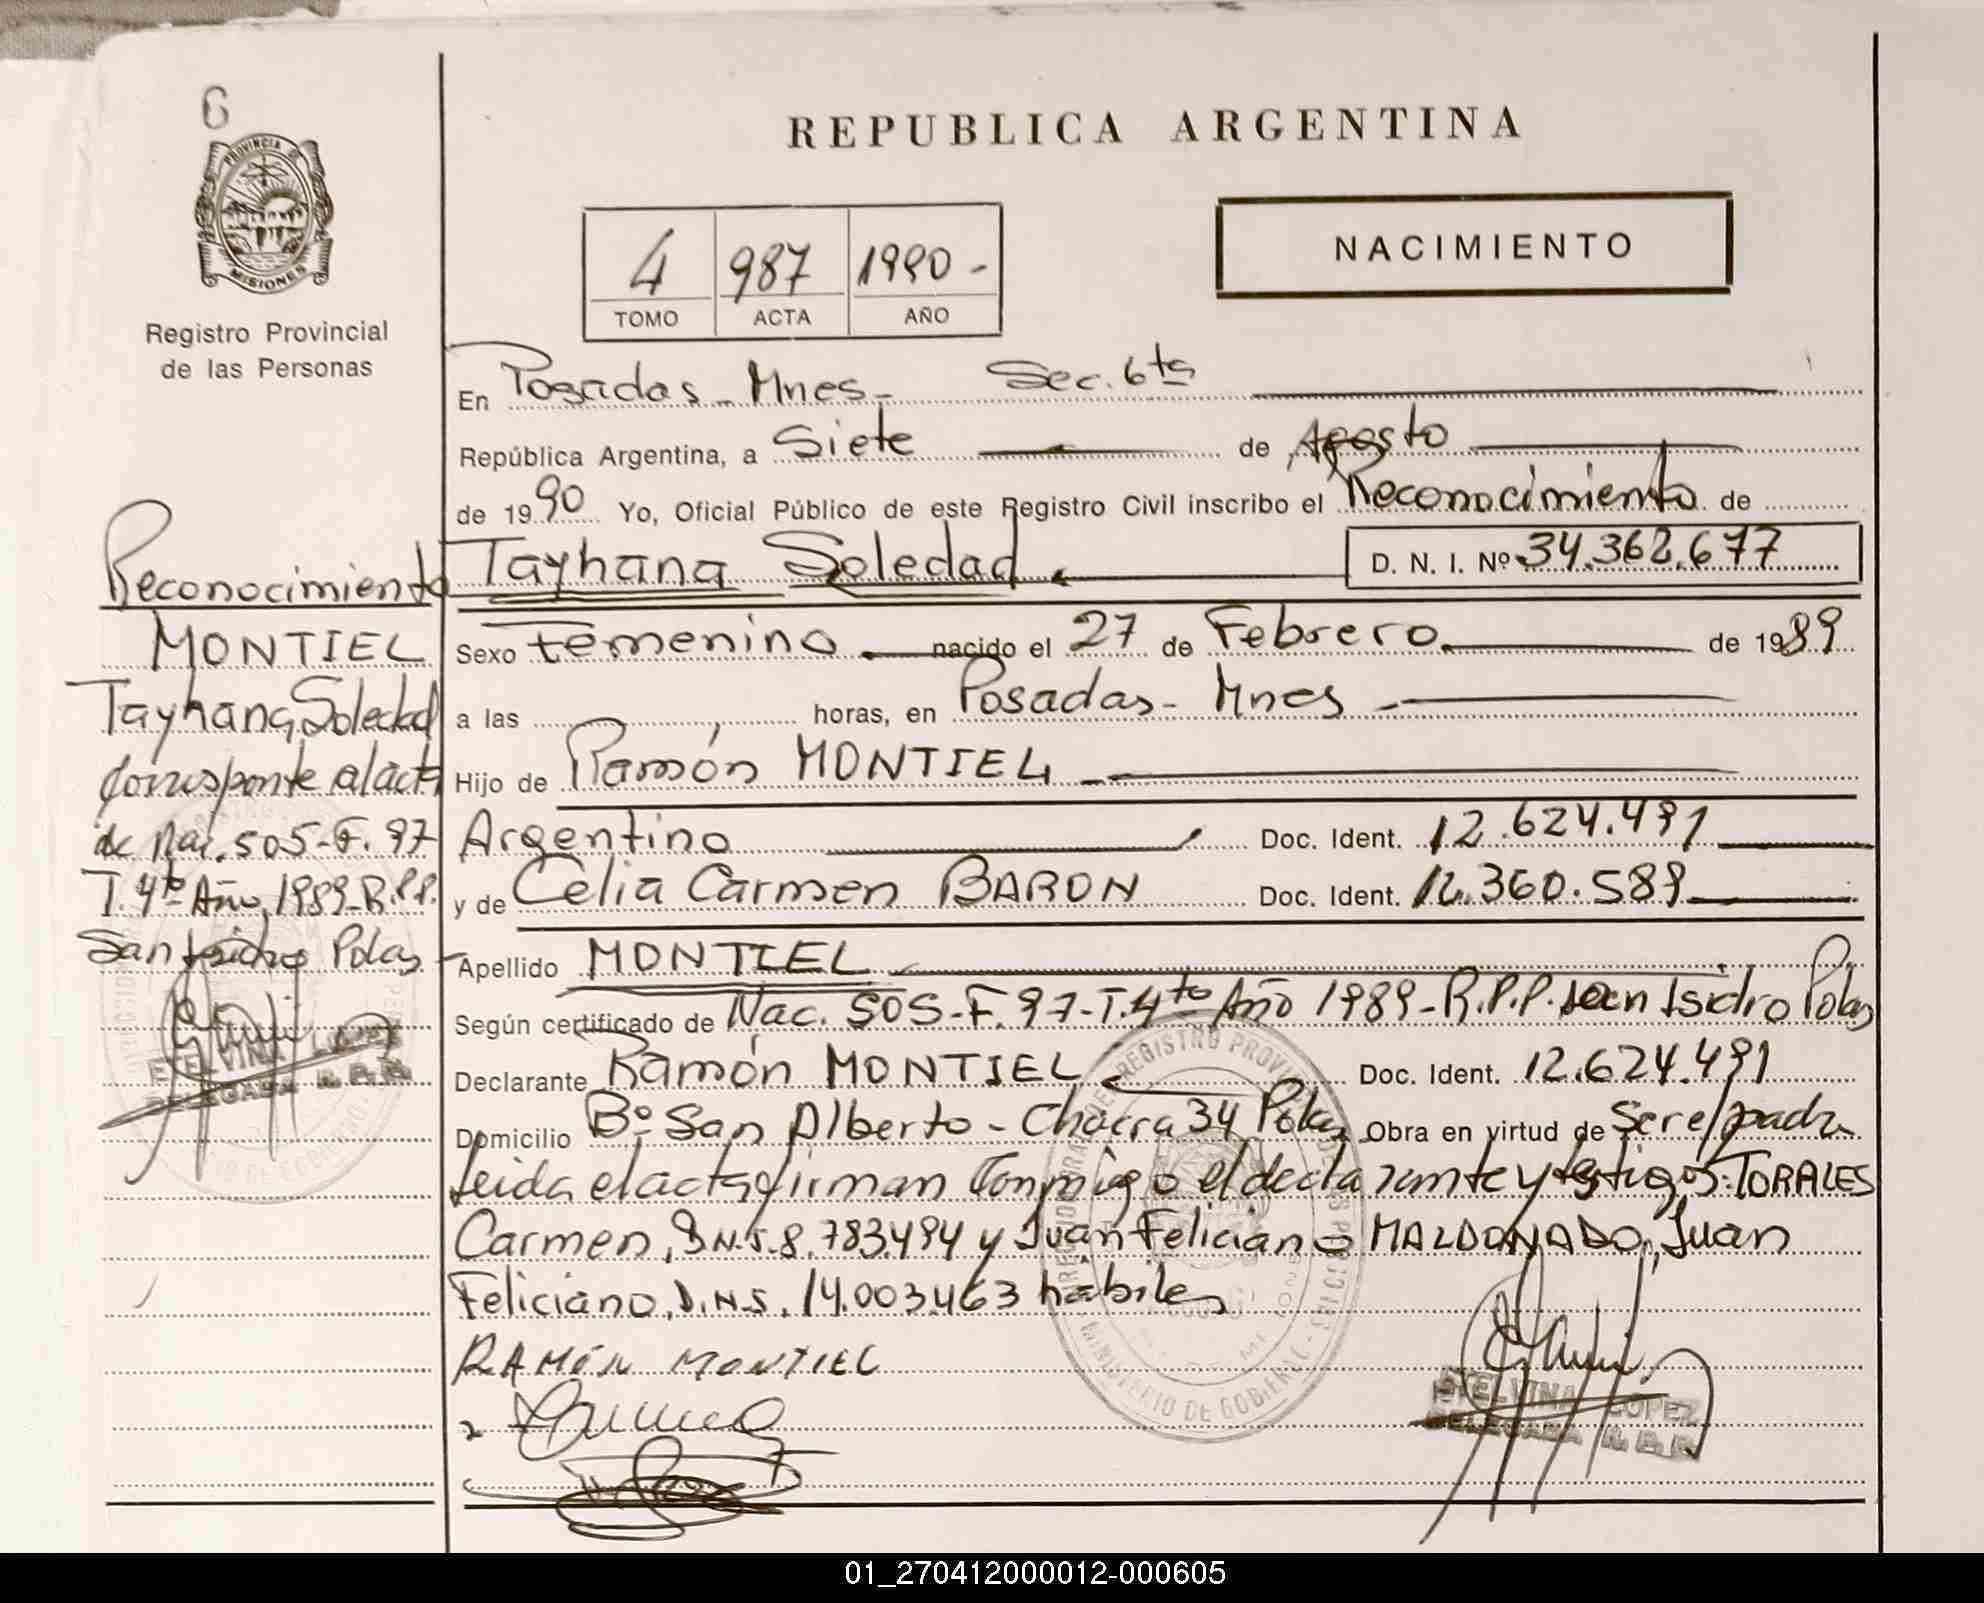 6
PROVINCIA DE
MISIONES
Registro Provincial
de las Personas
REPUBLICA ARGENTINA
4 987 1990 -
TOMO ACTA AÑO
NACIMIENTO
En Posadas - Mnes - Sec. 6ta
República Argentina, a Siete de Agosto
de 1990 Yo, Oficial Público de este Registro Civil inscribo el Reconocimiento de
Tayhana Soledad D. N. I. Nº 34.362.677
Sexo Femenino nacido el 27 de Febrero de 1989
a las horas, en Posadas - Mnes -
Hijo de Ramón MONTIEL -
Argentino Doc. Ident. 12.624.491
y de Celia Carmen BARON Doc. Ident. 12.360.589
Apellido MONTIEL
Según certificado de Nac. 505-F. 97-T. 4to Año 1989-R.P.P. San Isidro Pdas
Declarante Ramón MONTIEL Doc. Ident. 12.624.491
Domicilio Bº San Alberto - Chacra 34 Pdas Obra en virtud de Ser el padre
Leida el acta firman conmigo el declarante y testigos: TORALES
Carmen, D.N.I. 8.783.494 y Juan Feliciano MALDONADO, Juan
Feliciano, D.N.I. 14.003.463 habiles
RAMÓN MONTIEL
ETELVINA LOPEZ
DELEGADA R. P. P.
Reconocimiento
MONTIEL
Tayhana Soledad
Corresponde al acta
de Nac. 505-F. 97
T. 4to Año 1989-R.P.P.
San Isidro Pdas
ETELVINA LOPEZ
DELEGADA R. P. P.
REGISTRO PROVINCIAL
MINISTERIO DE GOBIERNO
01_270412000012-000605